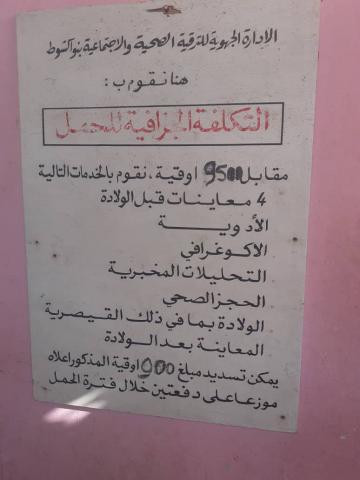 الادارة الجهوية للترقية الصحية والاجتماعية بنواكشوط
هنا نقوم ب :
التكلفة الجزافية للحمل
مقابل 9500 اوقية ، نقوم بالخدمات التالية
4 معاينات قبل الولادة
الأدوية
الاكوغرافي
التحليلات المخبرية
الحجز الصحي
الولادة بما في ذلك القيصرية
المعاينة بعد الولادة
يمكن تسديد مبلغ 900 اوقية المذكور اعلاه
موزعا على دفعتين خلال فترة الحمل